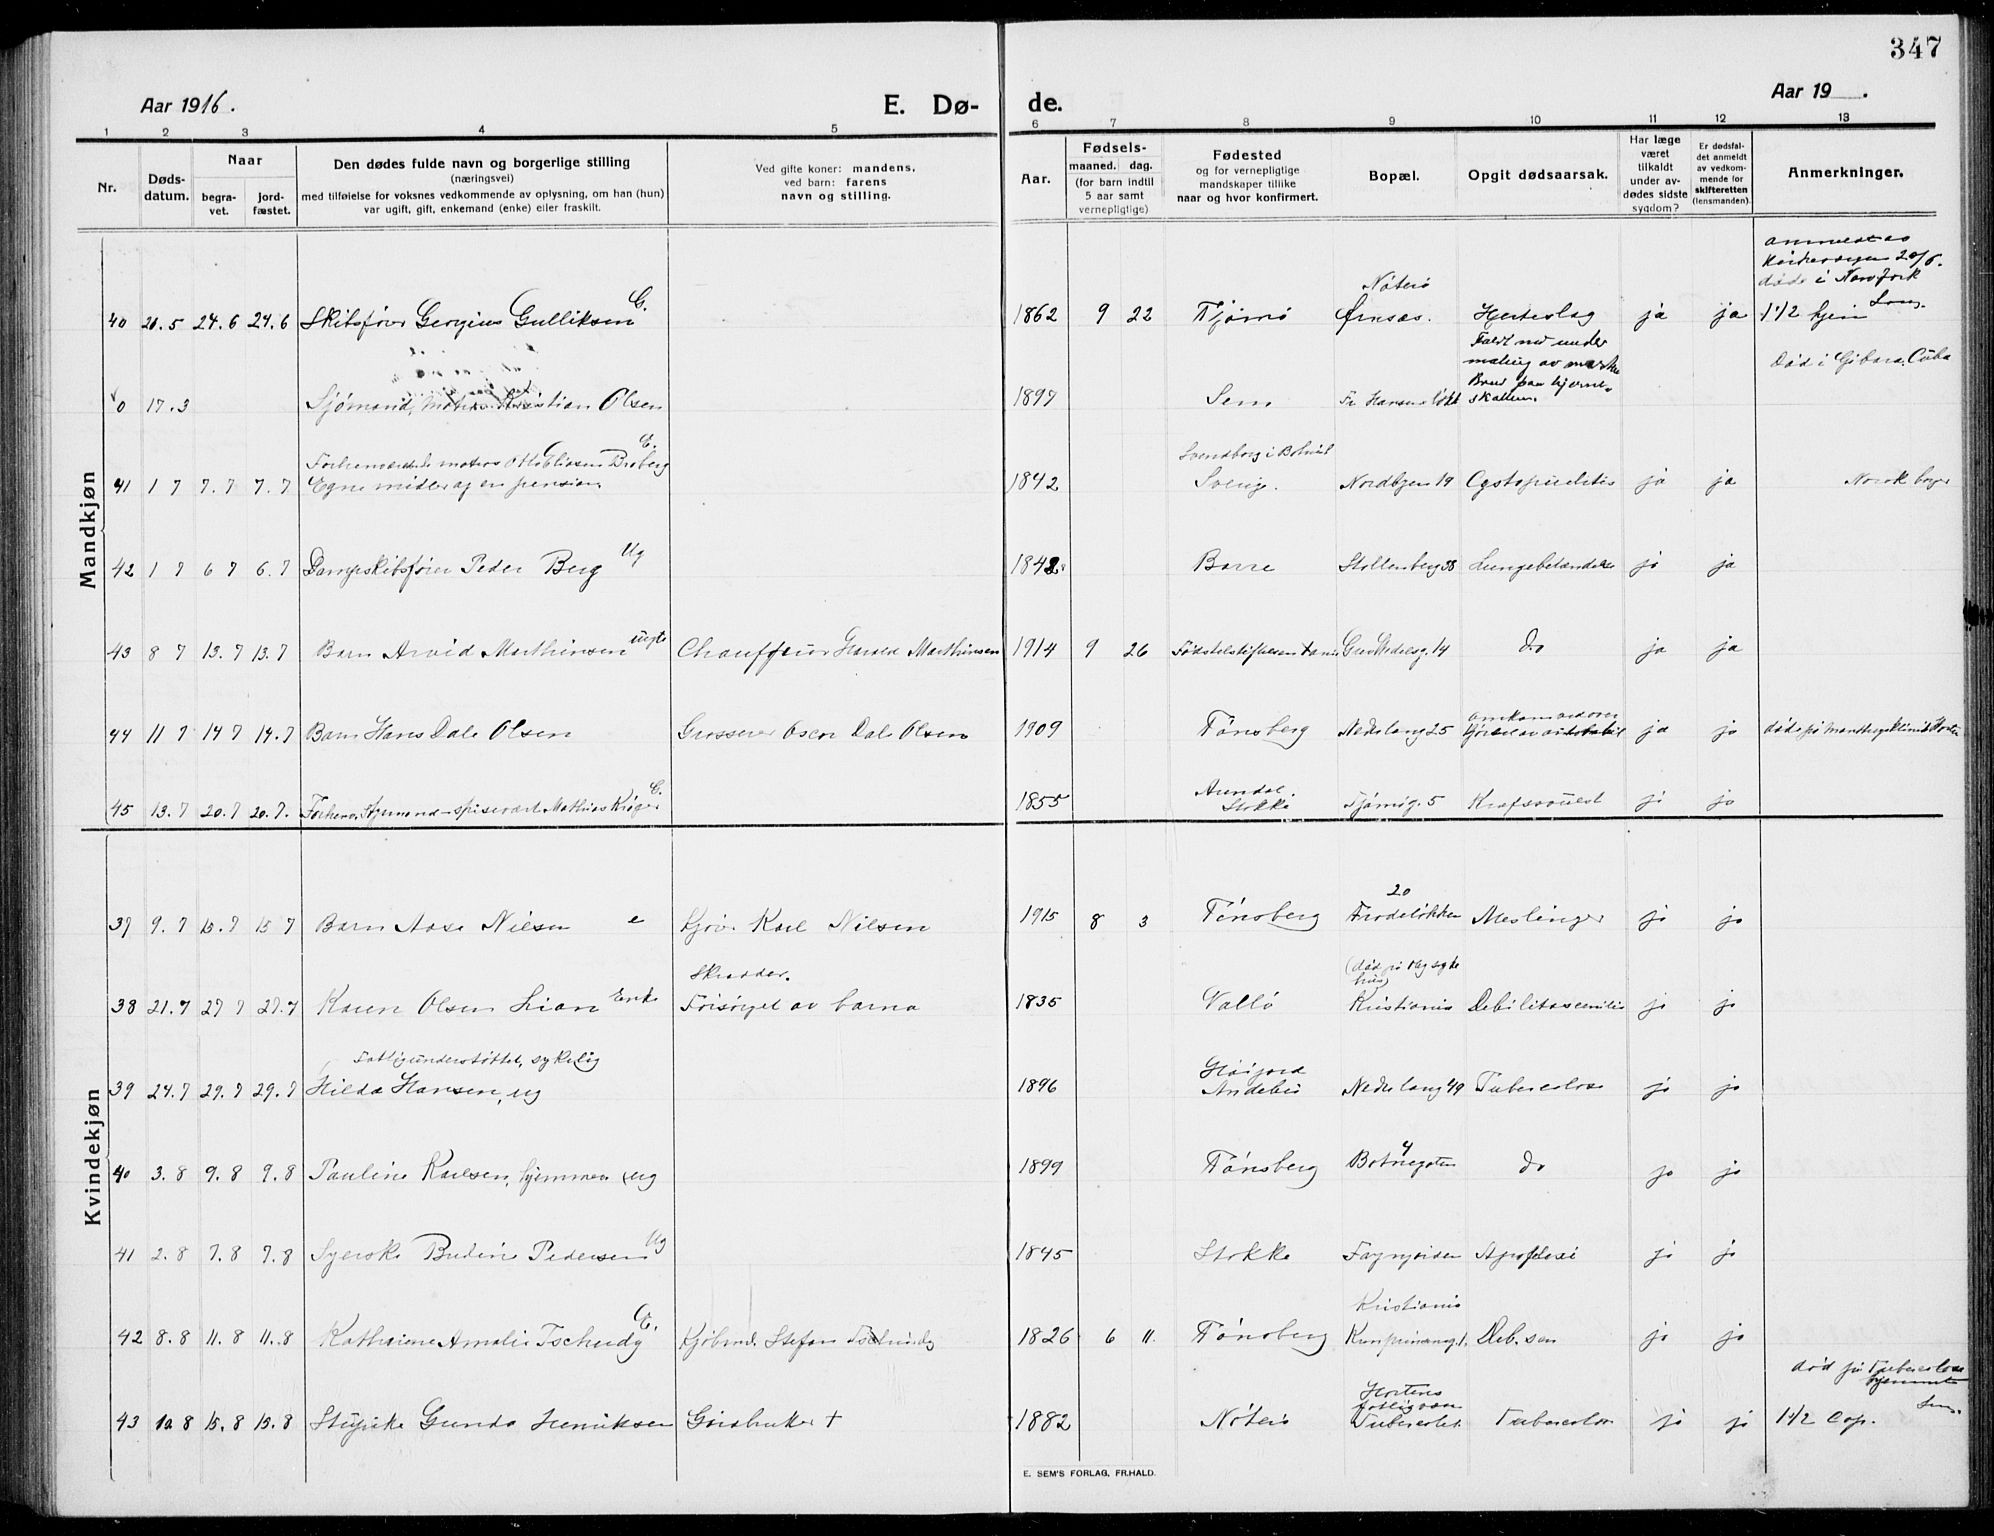 347
Aar 1916.
E. Dø-
de.
Aar 19 .
1 2 3 4 5 6 7 8 9 10 11 12 13
Nr.
Døds-
datum.
Naar
begra-
vet.
jord-
fæstet.
Den dødes fulde navn og borgerlige stilling
(næringsvei)
med tilføielse for voksnes vedkommende av oplysning, om han (hun)
var ugift, gift, enkemand (enke) eller fraskilt.
Ved gifte koner: mandens,
ved barn: farens
navn og stilling.
Aar.
Fødsels-
maaned. dag.
(for barn indtil
5 aar samt
vernepligtige)
Fødested
og for vernepligtige
mandskaper tillike
naar og hvor konfirmert.
Bopæl.
Opgit dødsaarsak.
Har læge
været
tilkaldt
under av-
dødes sidste
sygdom?
Er dødsfal-
det anmeldt
av vedkom-
mende for
skifteretten
(lensmanden).
Anmerkninger.
Mandkjøn
20/6.
døde i
Nøterø
G.
40 20.5 24.6 24.6 Skibsfører Gergius Gulliksen 1862 9 22 Tjømø Ørnsæs. Hjerteslag ja ja 1 1/2 hjem
Faldt ned under
maling av
Død i Gibara, Cuba
0 17.3 Sjømand, Kristian Olsen 1897 Sem Fr. Hansens løkk skallen.
Svendborg i
G.
Forhenværende matros Broberg
41 1 7 7.7 7.7 Egne midler og en pension. 1842 Sverige. Nordbyen 19 ja ja Norsk borger
Ug
42 1 7 6 7 6.7 Dampskibsfører Peder Berg 1842 Borre Stoltenberg 38 Lungebetændelse ja ja
uegte
43 8 7 13.7 13.7 Barn Arvid Marthinsen Chauffeur Harald Marthinsen 1914 9 26 Grev Wedelsg. 14 do ja ja
44 11 7 14 7 14.7 Barn Hans Dale Olsen Grosserer Oscar Dale Olsen 1909 Tønsberg Nedrelang 25 ja ja
G.
Arendal.
45 13.7 20.7 20.7. Forhenv. Sjømand - spisevært Mathias Krøger 1855 Stokke Tjømøg. 5 Kræftsvulst ja ja
Kvindekjøn
20
37 9.7 15.7 15 7 Barn Aase Nilsen e Kjør. Karl Nilsen 1915 8 3 Tønsberg Frodeløkken Meslinger ja ja
Skrædder.
38 21.7 27 7 27.7 Karen Olsen Lian Enke Forsørget av barna 1835 Vallø Kristiania Debilitas senilis ja ja
Fattigunderstøttet, sykelig
39 24.7 29.7 29.7 Hilda Hansen, ug 1896 Andebu Nedrelang 49 Tuberculose ja ja
4
40 3.8 9.8 9.8 Pauline Karlsen, hjemmev. ug 1899 Tønsberg Botnegaten do ja ja
Ug
41 2.8 7.8 7.8 Syerske Budine Pedersen 1845 Stokke Fagnjorden Apoplexi ja ja
Kristiania
E.
42 8.8 11.8 11.8 Kathrine Amalie Tschudy Kjøbmd. Stefan Tschudy 1826 6 11. Tønsberg Deb. sen ja ja
død på Tuberculose
hjemmet
Hortens
43 10.8 15.8 15.8 Stupike Gunda Henriksen Gaardbruker † 1882 Nøterø Tuberculose ja ja 1 1/2 Cap.
E. SEM'S FORLAG, FR.HALD.